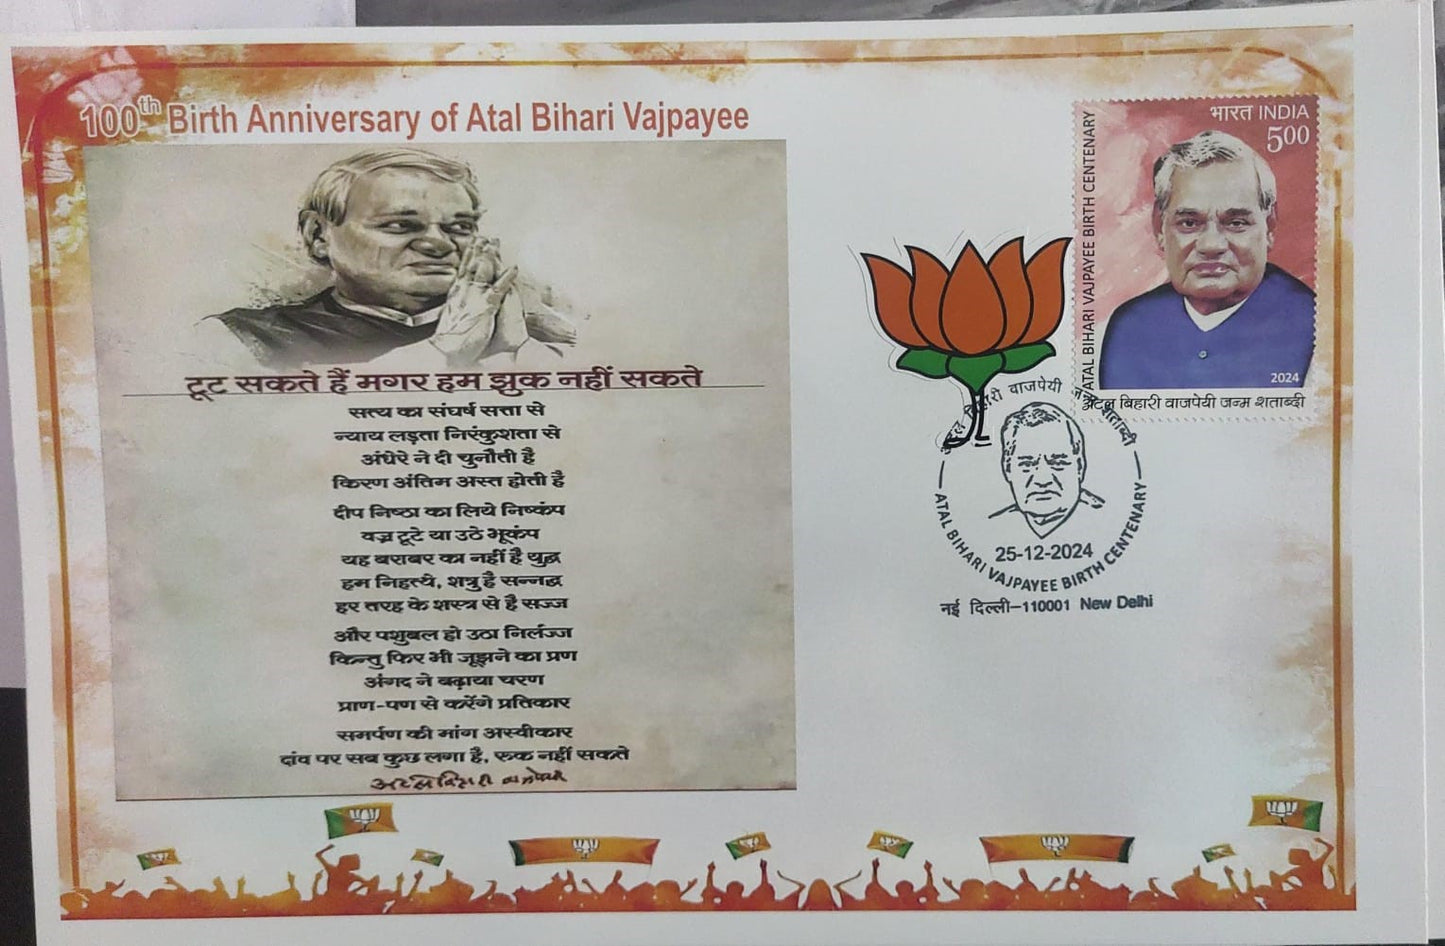 100th Birth Anniversary of Atal Bihari Vajpayee
टूट सकते हैं मगर हम झुक नहीं सकते
सत्य का संघर्ष सत्ता से
न्याय लड़ता निरंकुशता से
अंधेरे ने दी चुनौती है
किरण अंतिम अस्त होती है
दीप निष्ठा का लिये निष्कंप
वज्र टूटे या उठे भूकंप
यह बराबर का नहीं है युद्ध
हम निहत्थे, शत्रु है सन्नद्ध
हर तरह के शस्त्र से है सज्ज
और पशुबल हो उठा निर्लज्ज
किन्तु फिर भी जूझने का प्रण
अंगद ने बढ़ाया चरण
प्राण-पण से करेंगे प्रतिकार
समर्पण की मांग अस्वीकार
दांव पर सब कुछ लगा है, रुक नहीं सकते
अटल बिहारी वाजपेयी
भारत INDIA
500
ATAL BIHARI VAJPAYEE BIRTH CENTENARY
2024
अटल बिहारी वाजपेयी जन्म शताब्दी
बिहारी वाजपेयी जन्म शताब्दी
25-12-2024
ATAL BIHARI VAJPAYEE BIRTH CENTENARY
नई दिल्ली-110001 New Delhi